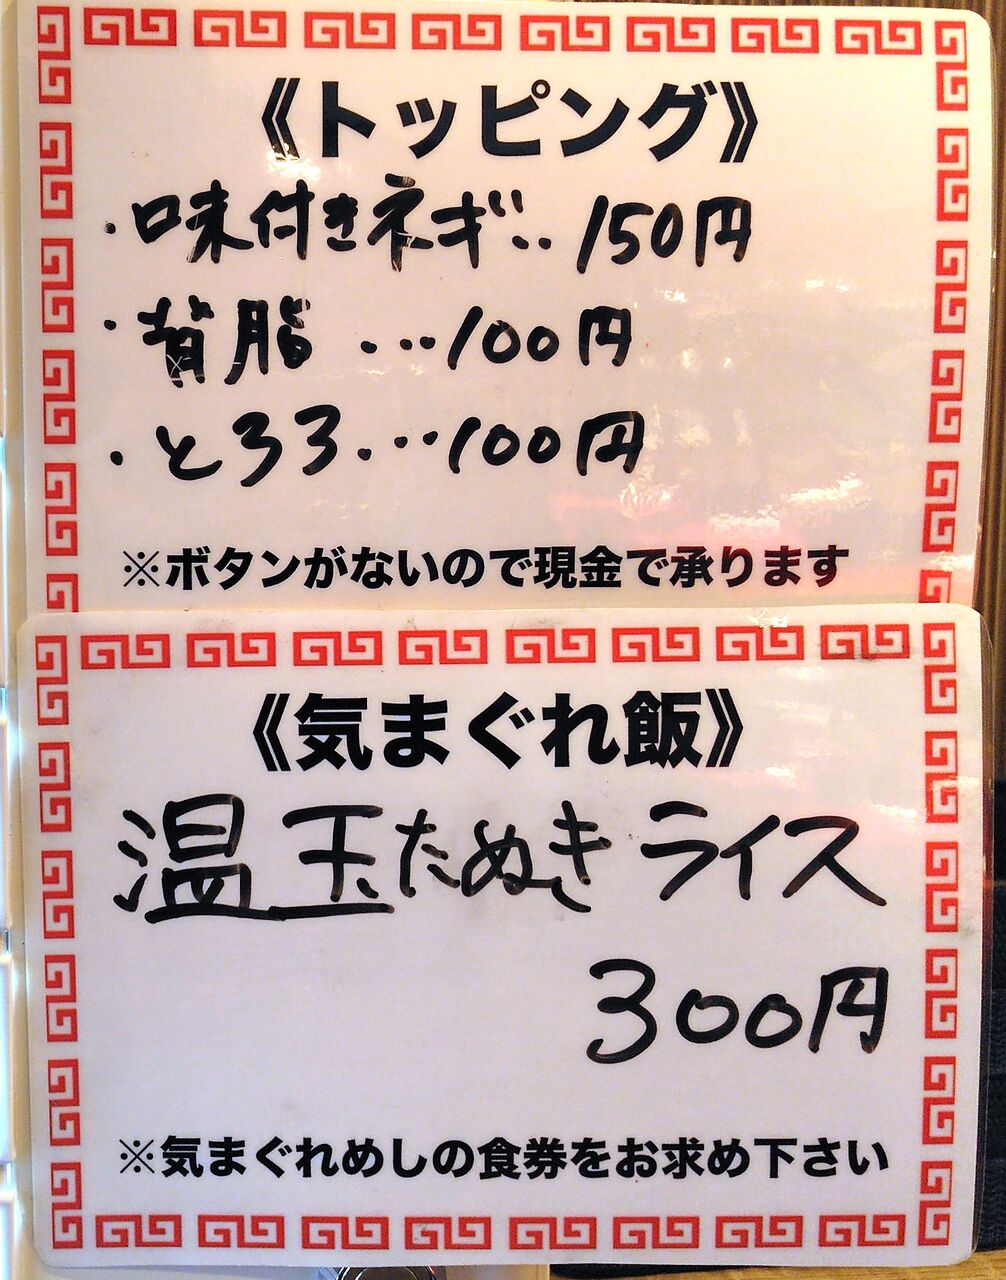 《トッピング》
・味付きネギ‥150円
・背脂…100円
・とろろ…100円
※ボタンがないので現金で承ります
《気まぐれ飯》
温玉たぬきライス
300円
※気まぐれめしの食券をお求め下さい